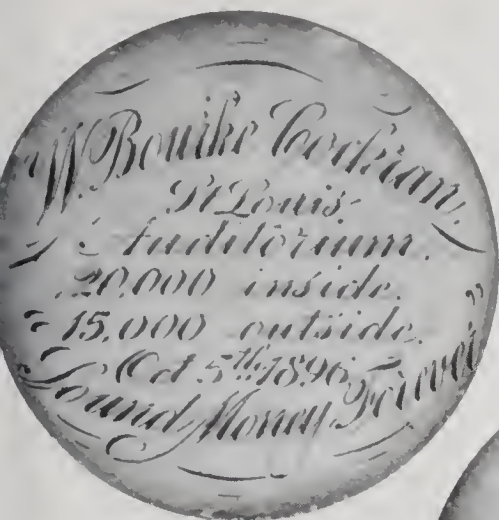 W. Bourke Cockran.
St Louis.
Auditorium.
20,000 inside.
15,000 outside.
Oct 5th 1896.
"Sound Money Forever"